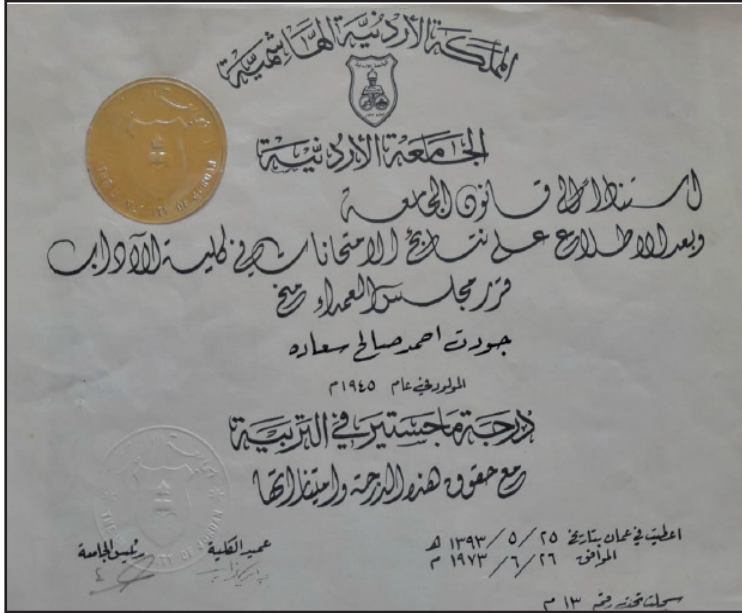 المملكة الأردنية الهاشمية
الجامعة الأردنية
استنادا الى قانون الجامعة
وبعد الاطلاع على نتائج الامتحانات في كلية الآداب
قرر مجلس العمداء منح
جودت احمد صالح سعاده
المولود في عام ١٩٤٥م
درجة ماجستير في التربية
مع حقوق هذه الدرجة وامتيازاتها
اعطيت في عمان بتاريخ ٢٥ / ٥ / ١٣٩٣ هـ
الموافق ٢٦ / ٦ / ١٩٧٣ م
عميد الكلية
رئيس الجامعة
سجلت تحت رقم ١٣ م